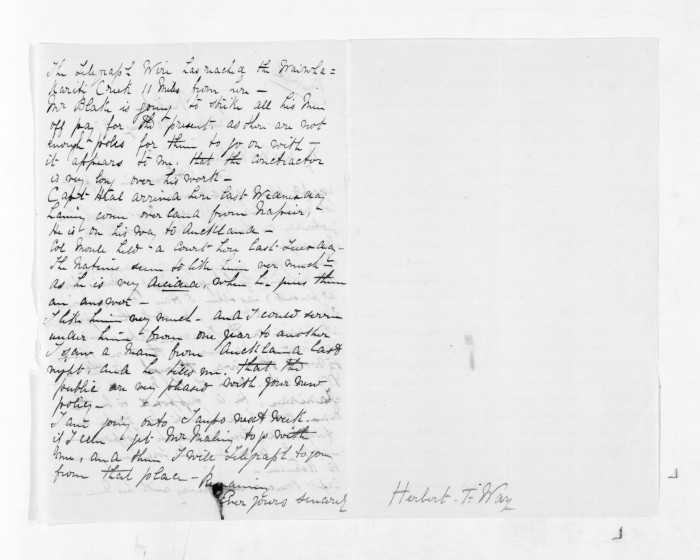 The Telegraph Wire has reached the Waiwha=
kariki Creek 11 Miles from here –
Mr Blake is going to strike all his Men
off pay for the present. as there are not
enough poles for them to go on with –
it appears to me. that the contractor
is very long over his work –
Capt Heal arrived here last Wednesday
having come overland from Napier,
He is on his way to Auckland –
Col Moule held a Court here last Tuesday –
The Natives seem to like him very much –
as he is very decided, when he gives them
an answer –
I like him very much – and I could serve
under him from one year to another
I saw a Man from Auckland last
night. and he tells me. that the
public are very pleased with your new
policy –
I am going onto Taupo next week.
if I can get Mr Maling to go with
me, and then I will Telegraph to you
from that place – Remaining
Ever yours sincerely
Herbert. T. Way